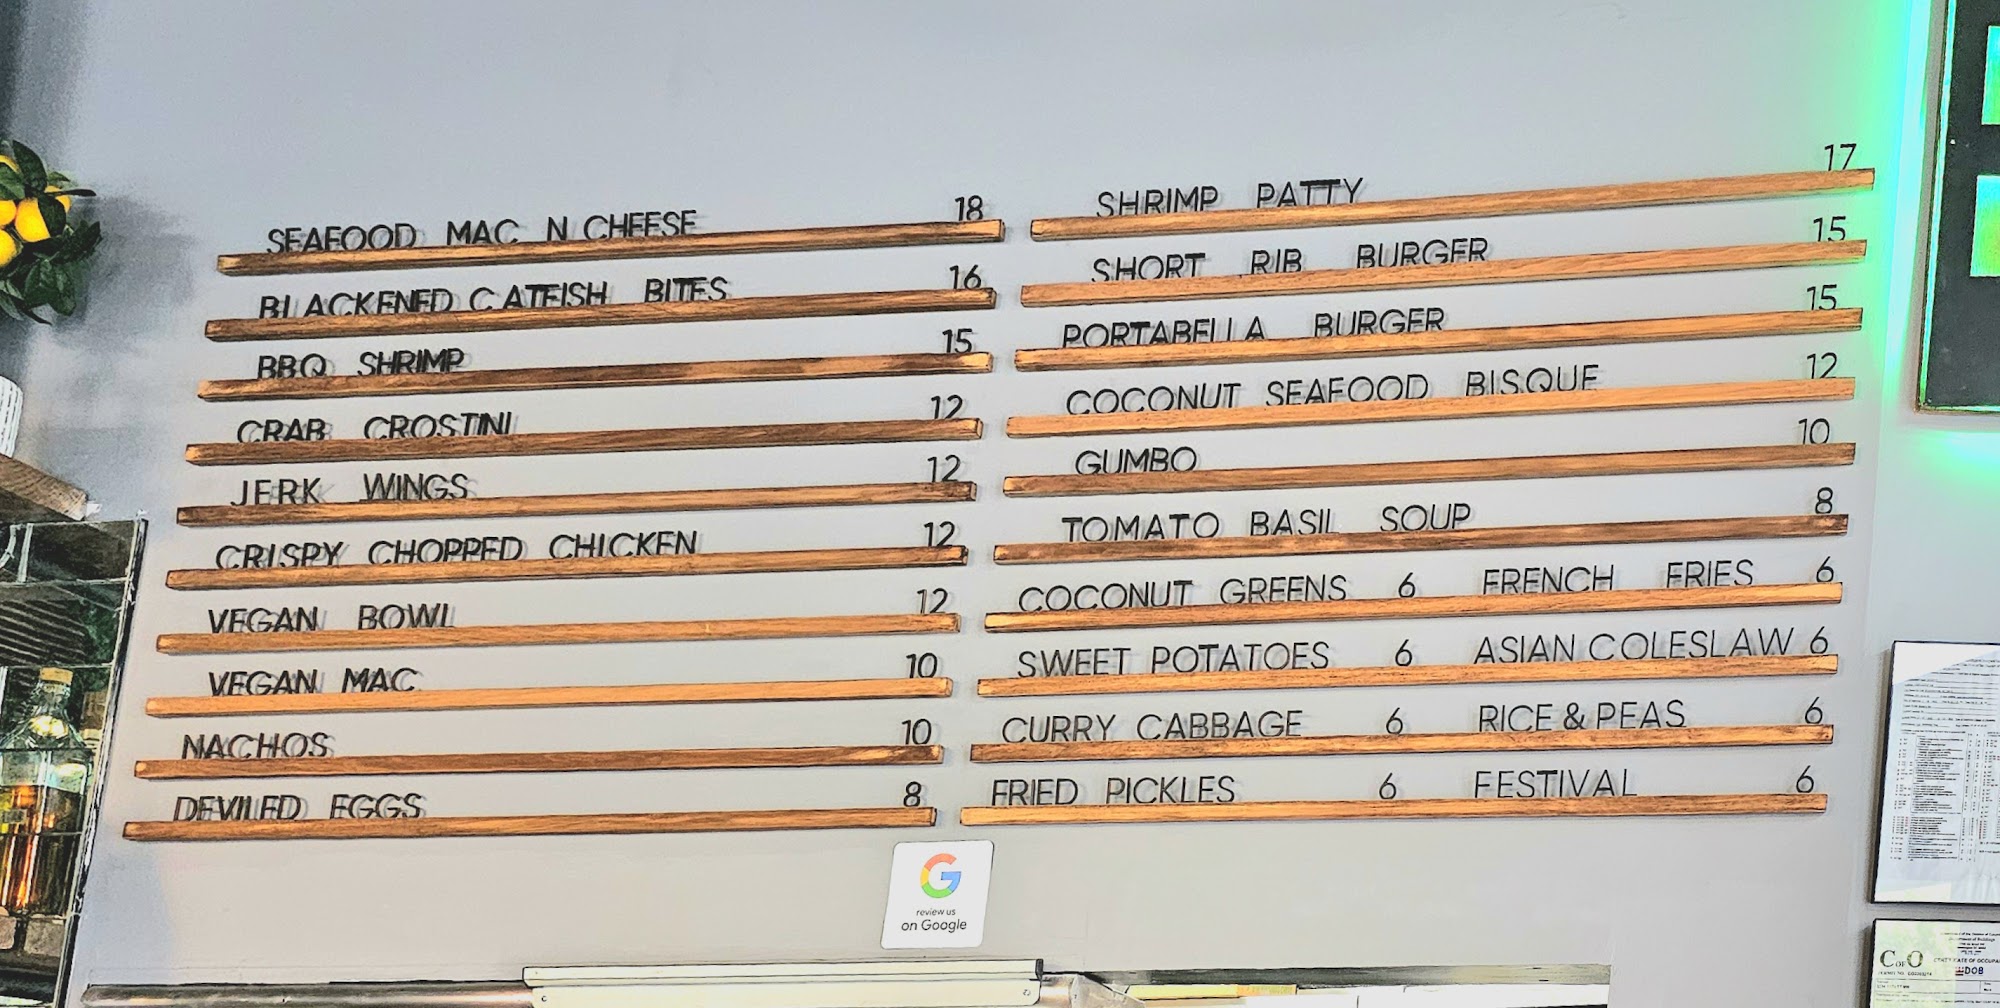 SEAFOOD MAC N CHEESE 18
BLACKENED CATFISH BITES 16
BBQ SHRIMP 15
CRAB CROSTINI 12
JERK WINGS 12
CRISPY CHOPPED CHICKEN 12
VEGAN BOWL 12
VEGAN MAC 10
NACHOS 10
DEVILED EGGS 8
SHRIMP PATTY 17
SHORT RIB BURGER 15
PORTABELLA BURGER 15
COCONUT SEAFOOD BISQUE 12
GUMBO 10
TOMATO BASIL SOUP 8
COCONUT GREENS 6 FRENCH FRIES 6
SWEET POTATOES 6 ASIAN COLESLAW 6
CURRY CABBAGE 6 RICE & PEAS 6
FRIED PICKLES 6 FESTIVAL 6
G
review us
on Google
C OF O
DOB